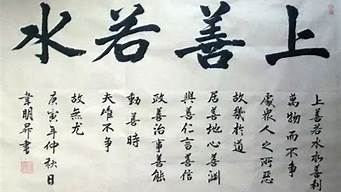 上善若水
上善若水水善利
萬物而不争
處衆人之所惡
故幾於道
居善地心善淵
與善仁言善信
政善治事善能
動善時
夫唯不争
故無尤
庚寅年仲秋日
韋明書